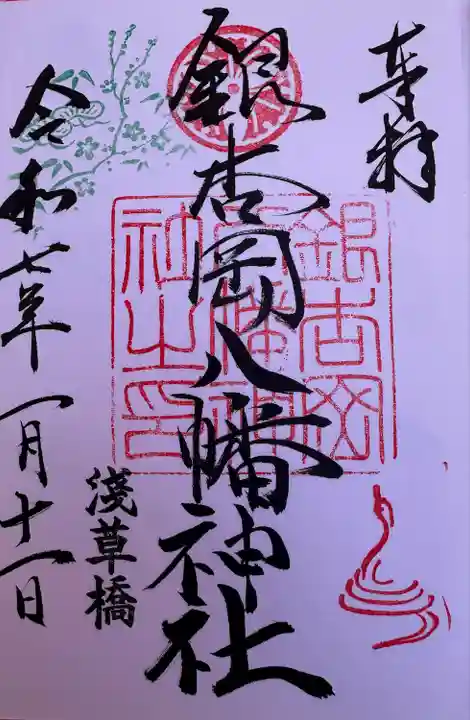 奉拝
銀杏岡八幡神社
銀杏岡
八幡神
社之印
淺草橋
令和七年一月十一日